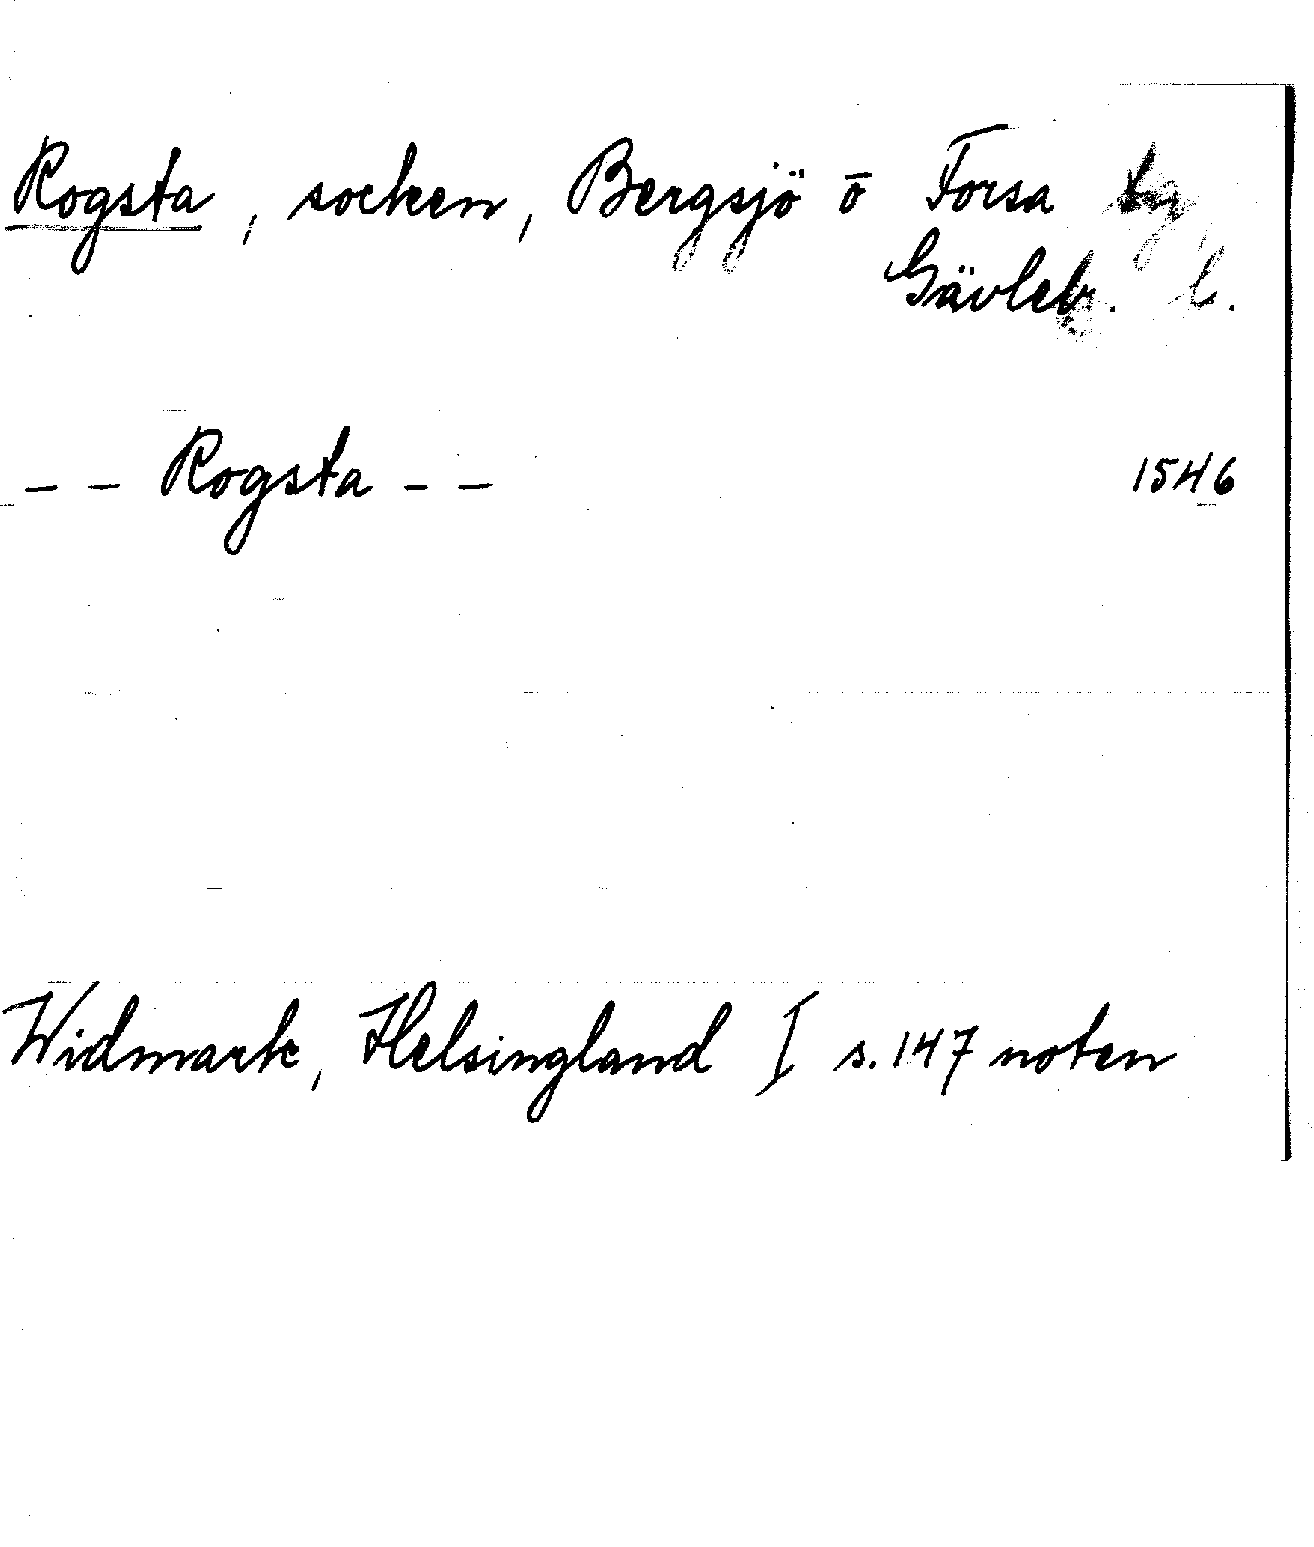 Rogsta, socken, Bergsjö o Forsa tg,
Gävleb. l.
-- Rogsta -- 1546
Widmark, Helsingland I s. 147 noten